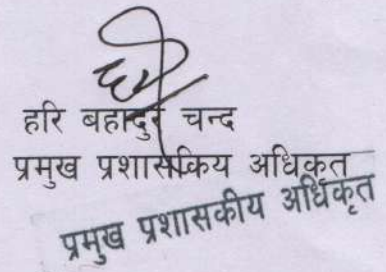 हरि बहादुर चन्द
प्रमुख प्रशासकिय अधिकृत
प्रमुख प्रशासकीय अधिकृत